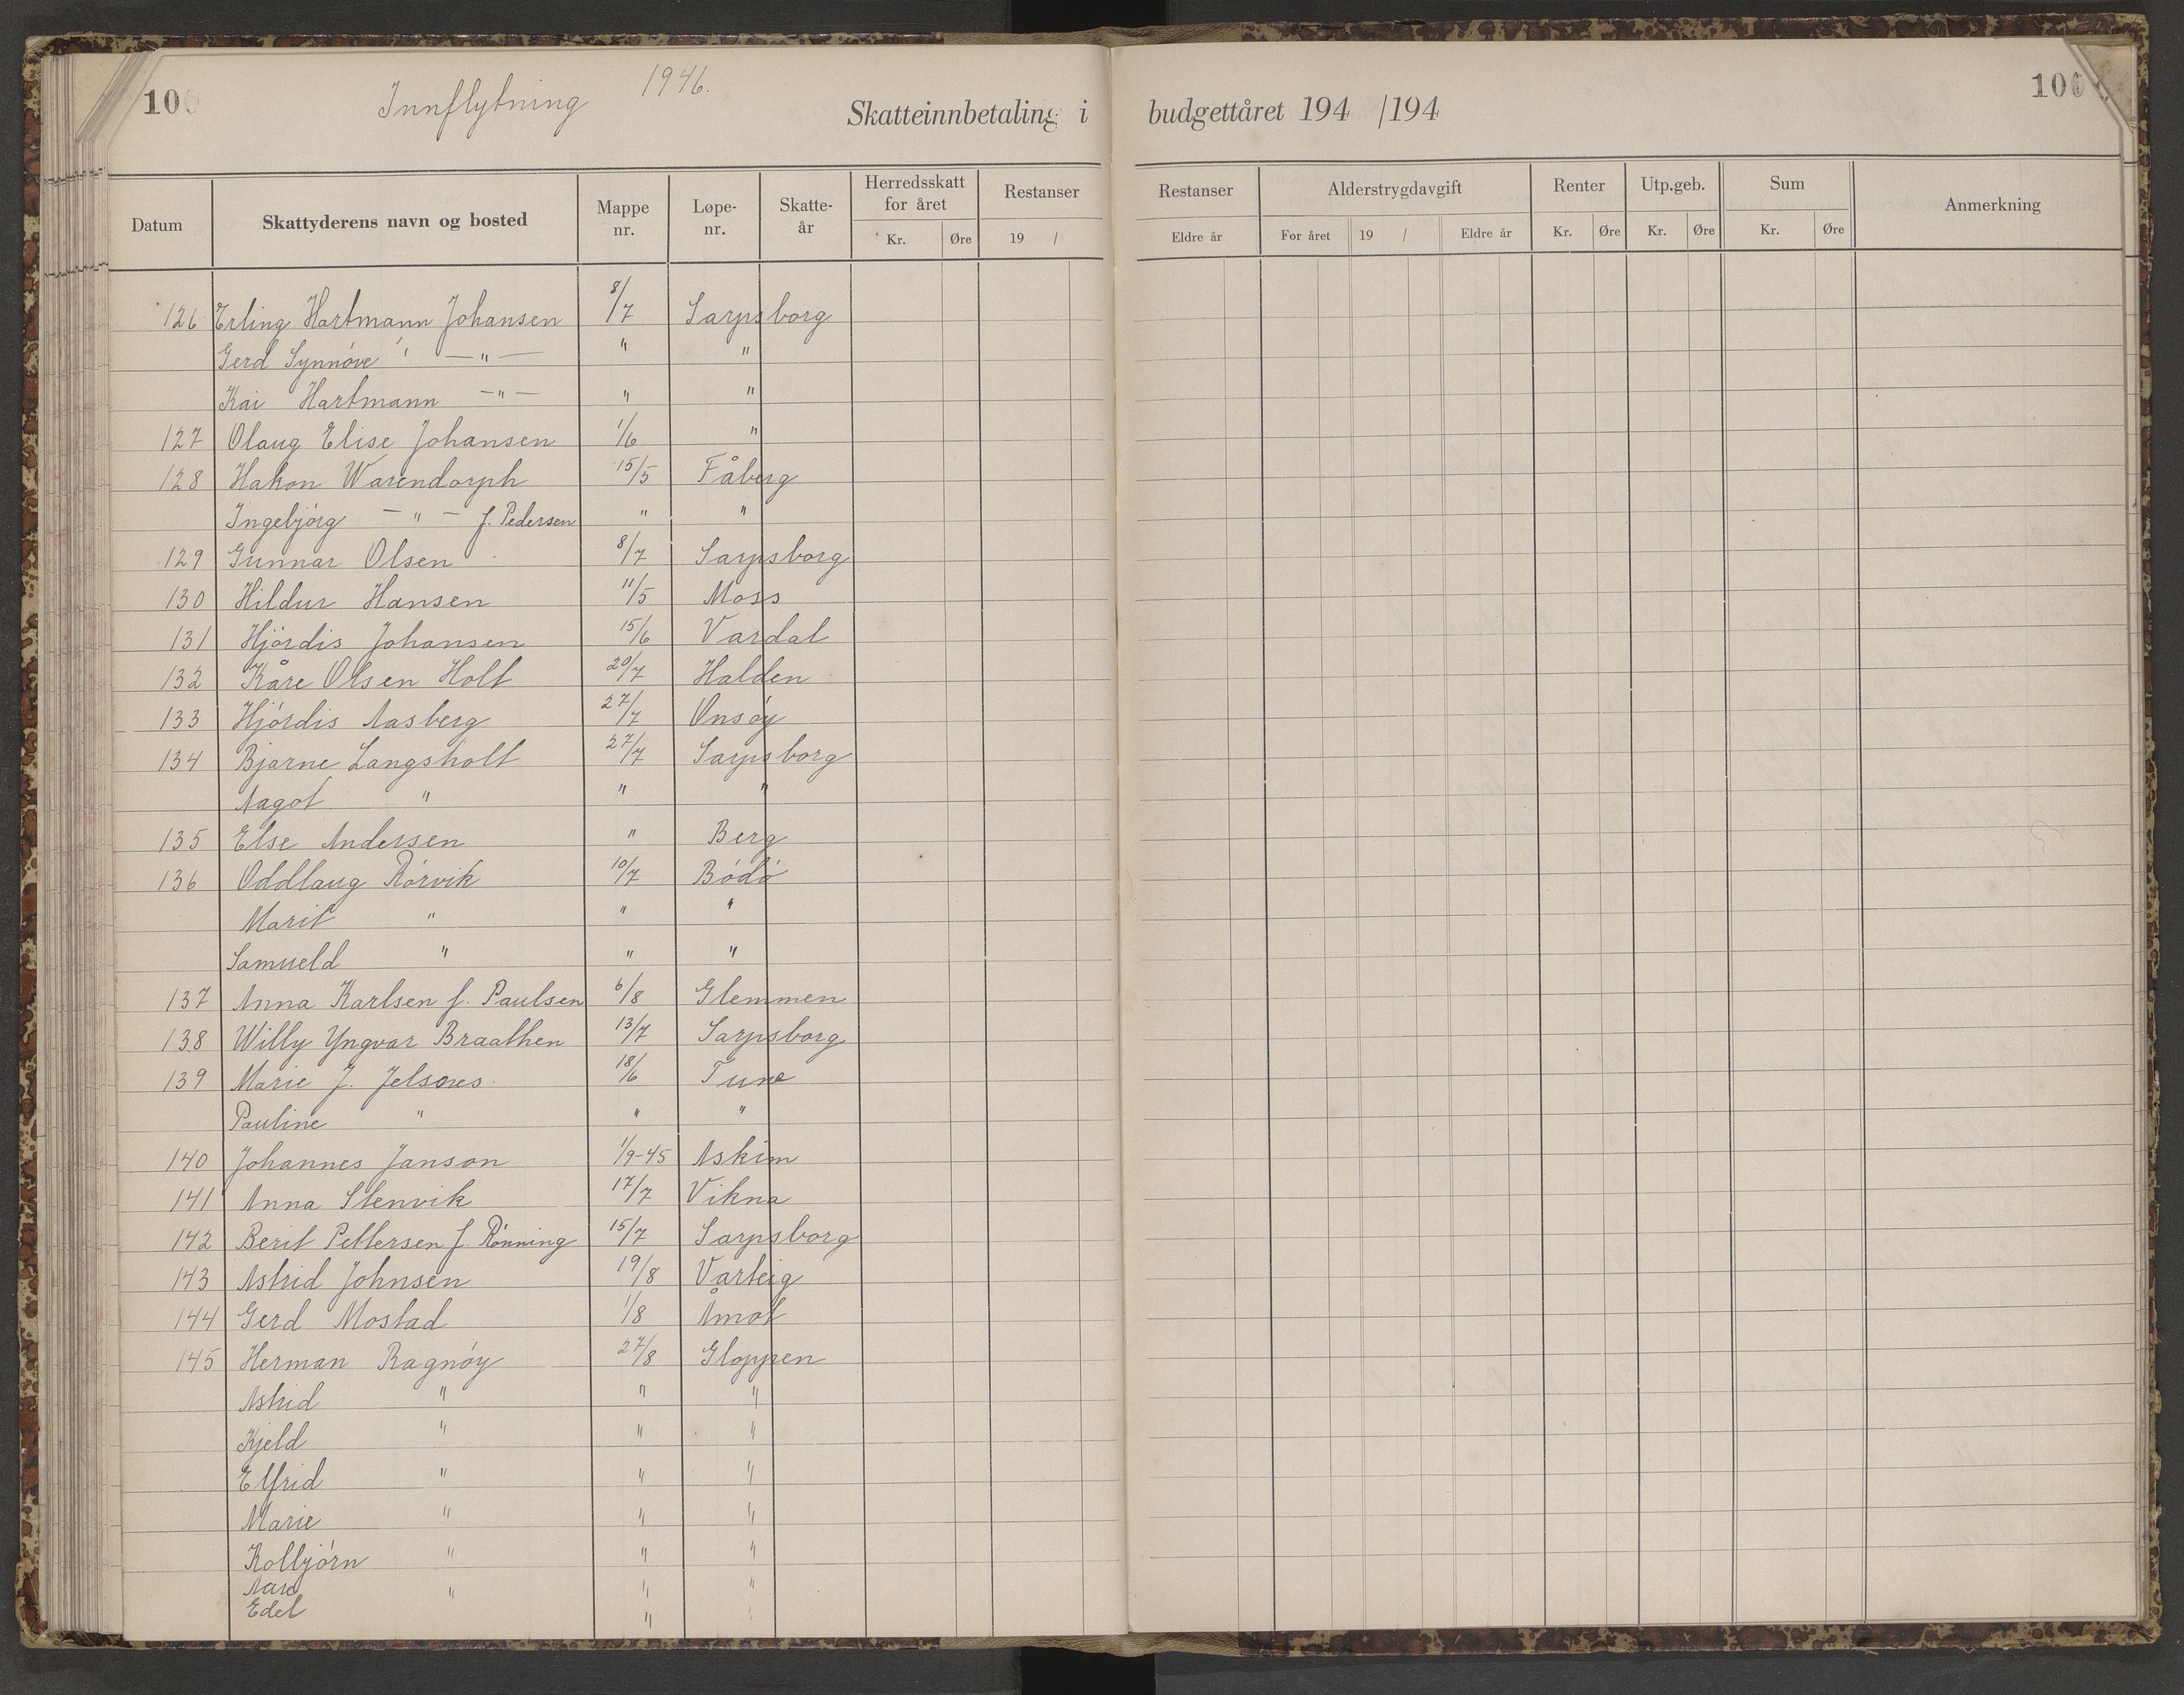 100
Innflytning 1946.
Skatteinnbetaling i budgettåret 194 /194
100
Datum Skattyderens navn og bosted Mappe nr. Løpe-nr. Skatte-år Herredsskatt for året Kr. Øre Restanser 19 /
Restanser Eldre år Alderstrygdavgift For året 19 / Eldre år Renter Kr. Øre Utp.geb. Kr. Øre Sum Kr. Øre Anmerkning
126 Erling Hartmann Johansen 8/7 Sarpsborg
Gerd Synnöve — " — " "
Kai Hartmann — " — " "
127 Olaug Elise Johansen 1/6 "
128 Hakon Warendorph 15/5 Fåberg
Ingebjörg — " — f. Pedersen " "
129 Gunnar Olsen 8/7 Sarpsborg
130 Hildur Hansen 11/5 Moss
131 Hjördis Johansen 15/6 Vardal
132 Kåre Olsen Holt 20/7 Halden
133 Hjördis Aasberg 27/7 Onsöy
134 Bjarne Langsholt 27/7 Sarpsborg
Aagot " " "
135 Else Andersen " Berg
136 Oddlaug Rörvik 10/7 Bödö
Marit " " "
Samueld " " "
137 Anna Karlsen f. Paulsen 6/8 Glemmen
138 Willy Yngvar Braathen 13/7 Sarpsborg
139 Marie J. Jelsnes 18/6 Tune
Pauline " " "
140 Johannes Janson 1/9-45 Askim
141 Anna Stenvik 17/7 Vikna
142 Berit Pettersen f. Rönning 15/7 Sarpsborg
143 Astrid Johnsen 19/8 Varteig
144 Gerd Mostad 1/8 Åmot
145 Herman Ragnöy 27/8 Gloppen
Astrid " " "
Kjeld " " "
Elfrid " " "
Marie " " "
Kolbjörn " " "
" " "
Edel "